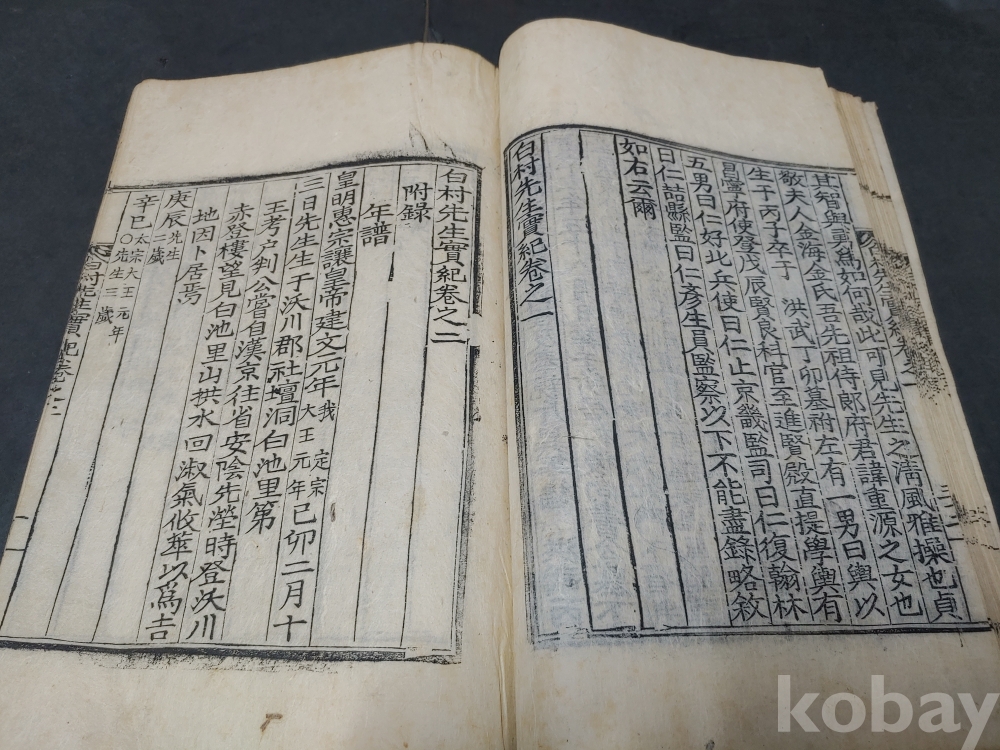 其智與勇爲如何哉此可見先生之淸風雅操也貞
敬夫人金海金氏吾先祖侍郞府君諱重源之女也
生于丙子卒于 洪武丁卯墓祔左有一男曰輿以
昌寧府使登戊辰賢良科官至進賢殿直提學輿有
五男曰仁好北兵使曰仁止京畿監司曰仁復翰林
曰仁喆縣監曰仁彥生員監察以下不能盡錄略敘
如右云爾
白村先生實紀卷之一
白村先生實紀卷之二
附錄
年譜
皇明惠宗讓皇帝建文元年我 定宗大王元年己卯二月十
三日先生生于沃川郡社壇洞白池里第
王考户判公嘗自漢京往省安陰先塋時登沃川
赤登樓望見白池里山拱水回淑氣攸萃以爲吉
地因卜居焉
庚辰先生二歲
辛巳太宗大王元年○先生三歲
白村先生實紀卷之二
一
kobay